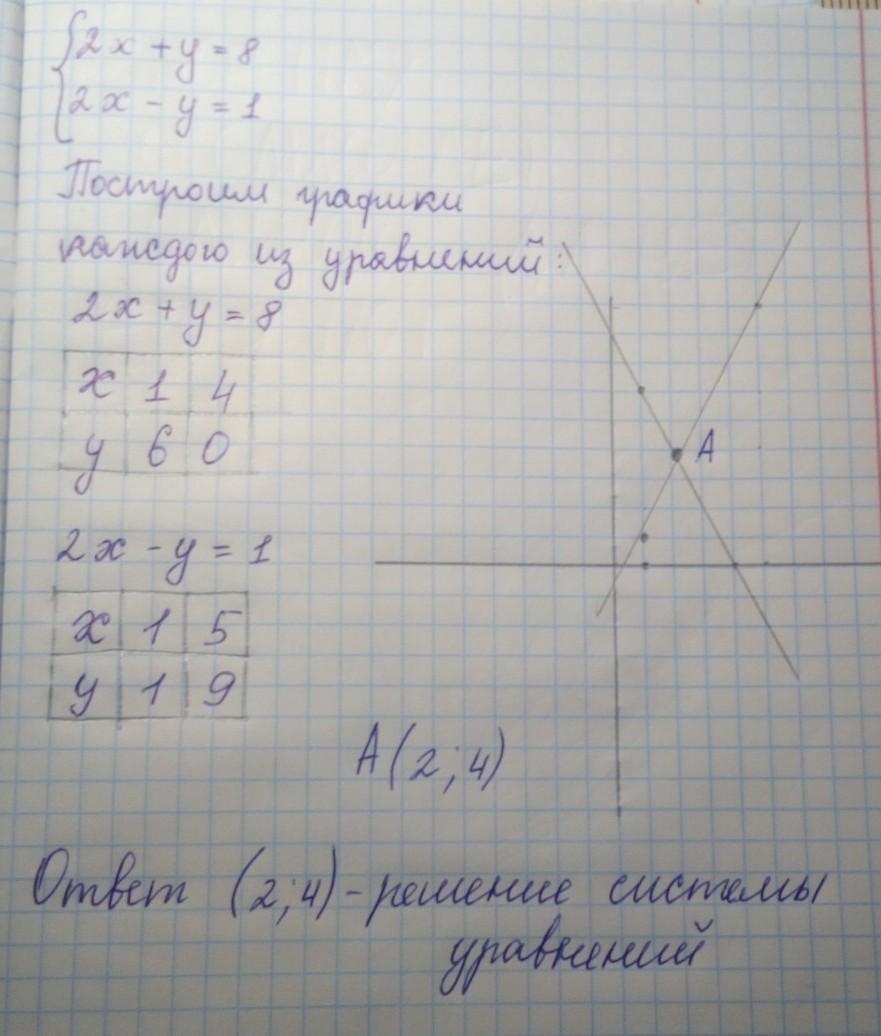 2x + y = 8
2x - y = 1
Построим графики
каждого из уравнений:
2x + y = 8
x 1 4
y 6 0
2x - y = 1
x 1 5
y 1 9
A
A(2;4)
Ответ (2;4) - решение системы
уравнений